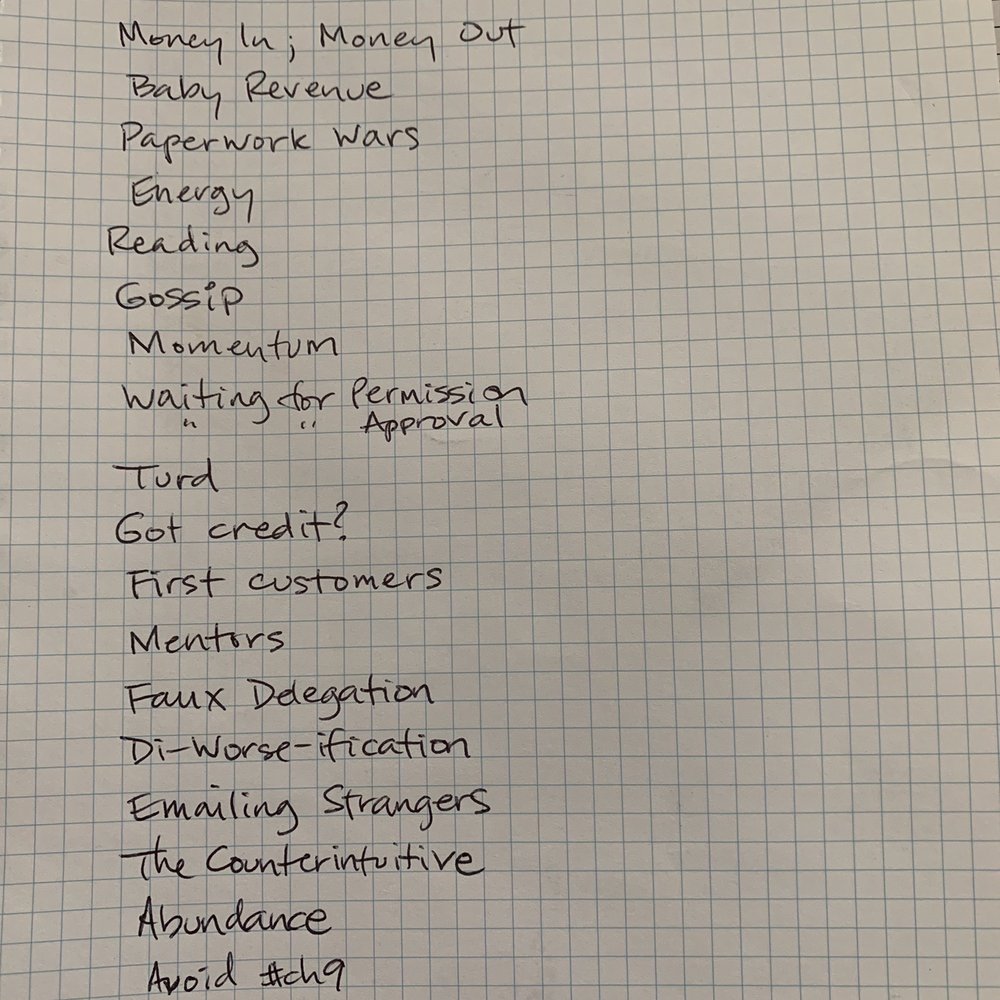 Money In; Money Out
Baby Revenue
Paperwork Wars
Energy
Reading
Gossip
Momentum
Waiting for Permission
" " Approval
Turd
Got credit?
First customers
Mentors
Faux Delegation
Di-Worse-ification
Emailing Strangers
The Counterintuitive
Abundance
Avoid #ch9